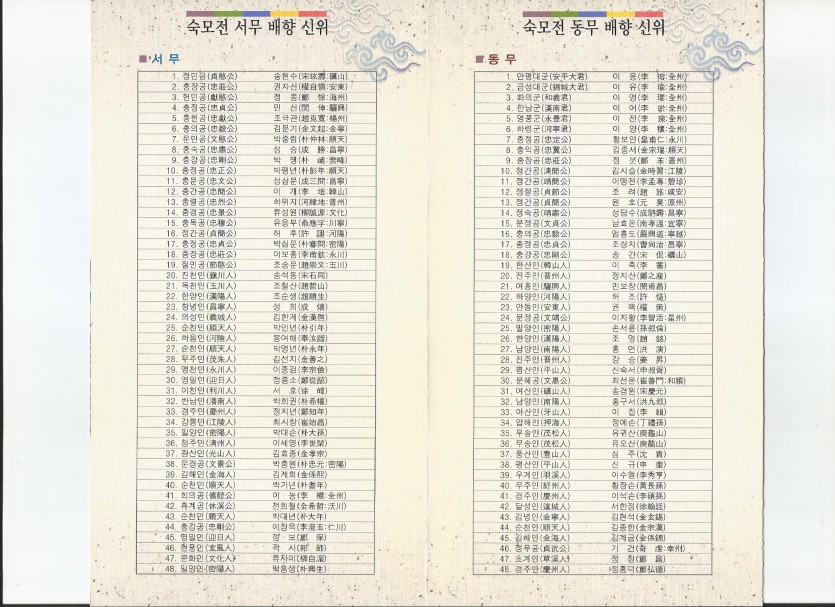 숙모전 서무 배향 신위
서 무
1. 정민공(貞愍公) 송현수(宋玹壽:礪山)
2. 충장공(忠莊公) 권자신(權自愼:安東)
3. 헌민공(獻愍公) 정 종(鄭 悰:海州)
4. 충정공(忠貞公) 민 신(閔 伸:驪興)
5. 충헌공(忠獻公) 조극관(趙克寬:楊州)
6. 충의공(忠毅公) 김문기(金文起:金寧)
7. 문민공(文愍公) 박중림(朴仲林:順天)
8. 충숙공(忠肅公) 성 승(成 勝:昌寧)
9. 충강공(忠剛公) 박 쟁(朴 崝:雲峰)
10. 충정공(忠正公) 박팽년(朴彭年:順天)
11. 충문공(忠文公) 성삼문(成三問:昌寧)
12. 충간공(忠簡公) 이 개(李 塏:韓山)
13. 충렬공(忠烈公) 하위지(河緯地:晋州)
14. 충경공(忠景公) 류성원(柳誠源:文化)
15. 충목공(忠穆公) 유응부(兪應孚:川寧)
16. 정간공(貞簡公) 허 후(許 詡:河陽)
17. 충정공(忠貞公) 박심문(朴審問:密陽)
18. 충장공(忠莊公) 이보흠(李甫欽:永川)
19. 절민공(節愍公) 조숭문(趙崇文:玉川)
20. 진천인(鎭川人) 송석동(宋石同)
21. 옥천인(玉川人) 조철산(趙哲山)
22. 한양인(漢陽人) 조순생(趙順生)
23. 창녕인(昌寧人) 성 희(成 熺)
24. 의성인(義城人) 김한계(金漢啓)
25. 순천인(順天人) 박인년(朴引年)
26. 하음인(河陰人) 봉여해(奉汝諧)
27. 순천인(順天人) 박영년(朴永年)
28. 무주인(茂朱人) 김선지(金善之)
29. 영천인(永川人) 이종검(李宗儉)
30. 영일인(迎日人) 정종소(鄭從韶)
31. 이천인(利川人) 서 호(徐 )
32. 반남인(潘南人) 박희권(朴希權)
33. 경주인(慶州人) 정지년(鄭知年)
34. 강릉인(江陵人) 최시창(崔始昌)
35. 밀양인(密陽人) 박대손(朴大孫)
36. 청주인(淸州人) 이세영(李世榮)
37. 광산인(光山人) 김효종(金孝宗)
38. 문경공(文景公) 박충원(朴忠元:密陽)
39. 김해인(金海人) 김계희(金係熙)
40. 순천인(順天人) 박기년(朴耆年)
41. 희의공( 公) 이 농(李 :全州)
42. 휴계공(休溪公) 전희철(全希哲:沃川)
43. 순천인(順天人) 박대년(朴大年)
44. 충강공(忠剛公) 이징옥(李澄玉:仁川)
45. 영일인(迎日人) 정 보(鄭 保)
46. 현풍인(玄風人) 곽 사(郭 師)
47. 문화인(文化人) 류자미(柳自湄)
48. 밀양인(密陽人) 박흥생(朴興生)
숙모전 동무 배향 신위
동 무
1. 안평대군(安平大君) 이 용(李 瑢:全州)
2. 금성대군(錦城大君) 이 유(李 瑜:全州)
3. 화의군(和義君) 이 영(李 瓔:全州)
4. 한남군(漢南君) 이 어(李 :全州)
5. 영풍군(永豊君) 이 전(李 瑔:全州)
6. 하령군(河寧君) 이 양(李 穰:全州)
7. 충정공(忠定公) 황보인(皇甫仁:永川)
8. 충익공(忠翼公) 김종서(金宗瑞:順天)
9. 충장공(忠莊公) 정 분(鄭 苯:晋州)
10. 청간공(淸簡公) 김시습(金時習:江陵)
11. 정간공(靖簡公) 이맹전(李孟專:碧珍)
12. 정절공(貞節公) 조 려(趙 旅:咸安)
13. 정간공(貞簡公) 원 호(元 昊:原州)
14. 정숙공(靖肅公) 성담수(成聃壽:昌寧)
15. 문정공(文貞公) 남효온(南孝溫:宜寧)
16. 충의공(忠毅公) 엄흥도(嚴興道:寧越)
17. 충정공(忠貞公) 조상치(曺尙治:昌寧)
18. 충강공(忠剛公) 송 간(宋 侃:礪山)
19. 한산인(韓山人) 이 축(李 蓄)
20. 진주인(晋州人) 정지산(鄭之産)
21. 여흥인(驪興人) 민보창(閔甫昌)
22. 하양인(河陽人) 허 조(許 慥)
23. 안동인(安東人) 권 책(權 策)
24. 문정공(文靖公) 이지활(李智活:星州)
25. 밀양인(密陽人) 손서륜(孫敍倫)
26. 한양인(漢陽人) 조 명(趙 銘)
27. 남양인(南陽人) 홍 연(洪 演)
28. 진주인(晋州人) 강 승(姜 昇)
29. 평산인(平山人) 신숙서(申叔胥)
30. 문혜공(文惠公) 최선문(崔善門:和順)
31. 여산인(礪山人) 송경원(宋慶元)
32. 남양인(南陽人) 홍구서(洪九敍)
33. 아산인(牙山人) 이 집(李 )
34. 압해인(押海人) 정예손(丁禮孫)
35. 무송인(茂松人) 유귀산(庾龜山)
36. 무송인(茂松人) 유오산(庾鰲山)
37. 풍산인(豊山人) 심 주(沈 )
38. 평산인(平山人) 신 규(申 奎)
39. 우계인(羽溪人) 이수형(李秀亨)
40. 우주인(紆州人) 황장손(黃長孫)
41. 경주인(慶州人) 이석손(李碩孫)
42. 달성인(達城人) 서한정(徐翰廷)
43. 김녕인(金寧人) 김현석(金玄錫)
44. 순천인(順天人) 김종한(金宗漢)
45. 김해인(金海人) 김계금(金係錦)
46. 정무공(貞武公) 기 건(奇 虔:幸州)
47. 초계인(草溪人) 정 창(鄭 昌)
48. 경주인(慶州人) 정홍덕(鄭弘德)